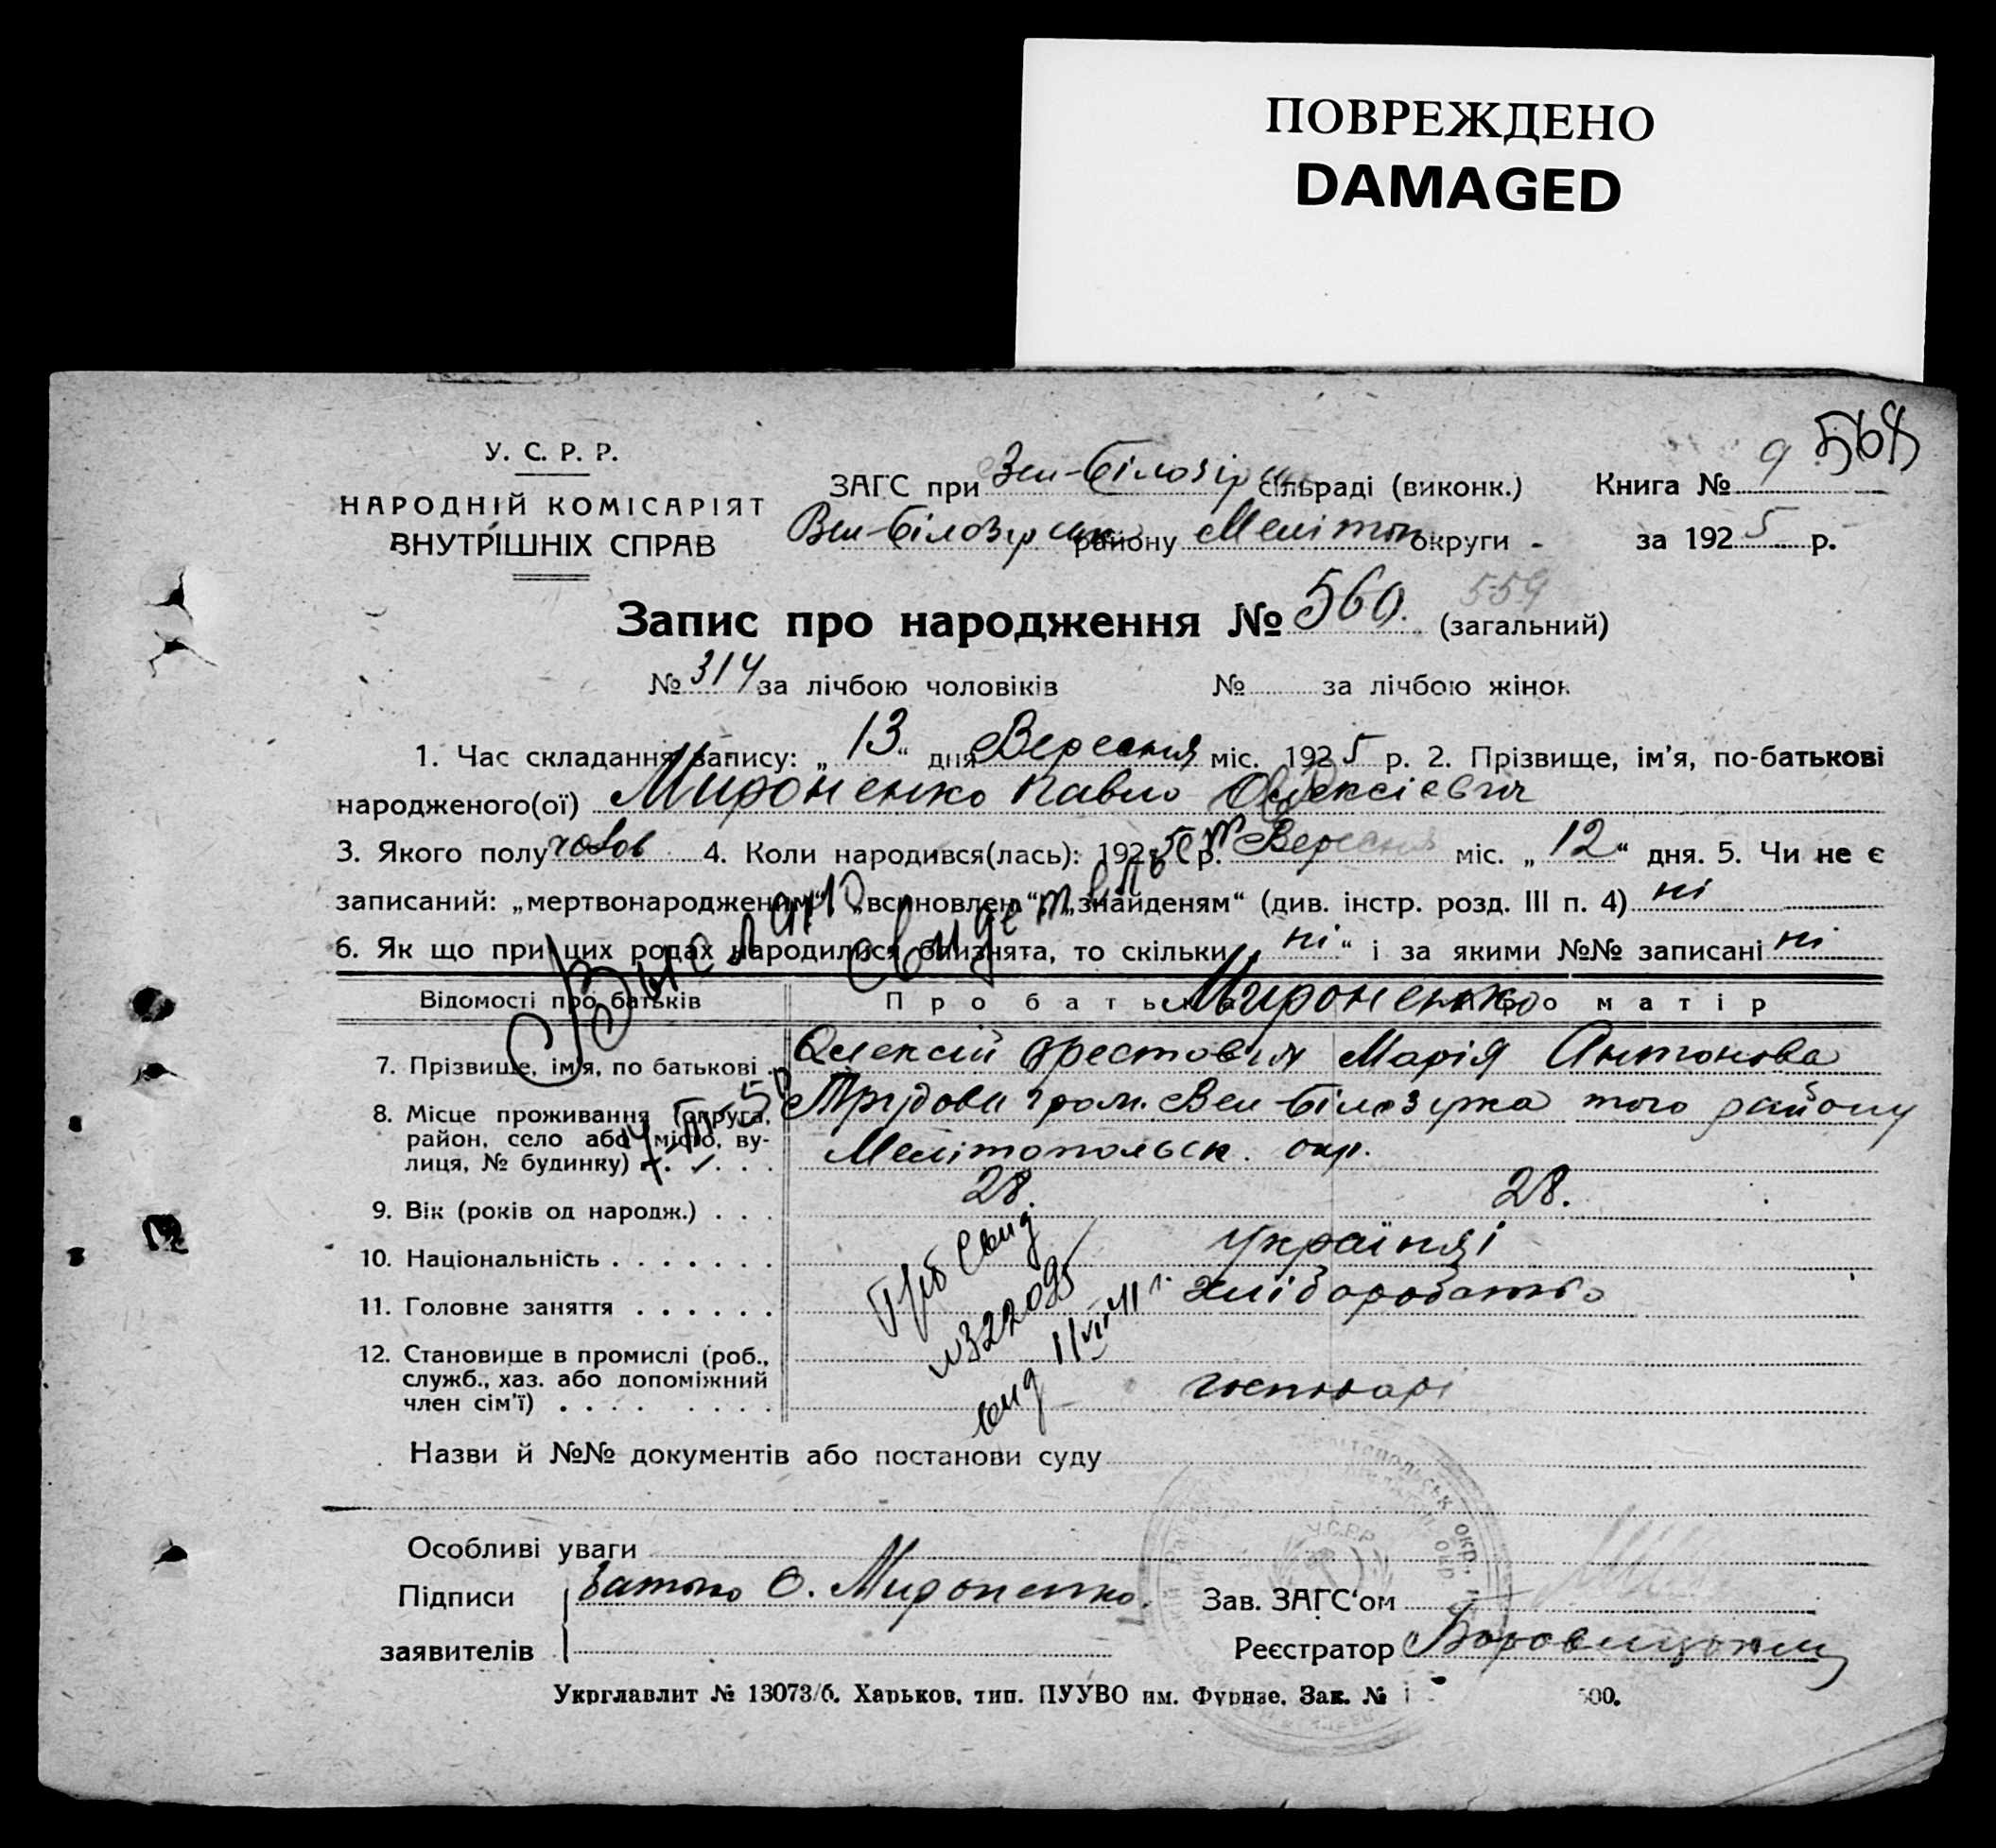 ПОВРЕЖДЕНО
DAMAGED
568
У. С. Р. Р.
НАРОДНІЙ КОМІСАРІЯТ
ВНУТРІШНІХ СПРАВ
ЗАГС при Вел-Білозір сільраді (виконк.)
Вел-Білозірськ району Мелітоп округи
Книга № 9
за 1925 р.
Запис про народження № 560. (загальний)
559
№ 314 за лічбою чоловіків № за лічбою жінок
1. Час складання запису: „13“ дня Вересня міс. 1925 р. 2. Прізвище, ім'я, по-батькові
народженого(ої) Мироненко Павло Олексієвич
3. Якого полу чолов 4. Коли народився(лась): 1925 р. Вересня міс. „12“ дня. 5. Чи не є
записаний: „мертвонародженим“, „всиновлен“, „знайденям“ (див. інстр. розд. III п. 4) ні
6. Як що при цих родах народилися близнята, то скільки „ні“ і за якими №№ записані ні
Выслано свидет
Відомості про батьків Про батька Про матір
Мироненко
7. Прізвище, ім'я, по батькові . Олексій Орестович Марія Антонова
8. Місце проживання (округа, район, село або місто, вулиця, № будинку) Трудова гром. Вел-Білозірка того району
Мелітопольськ. окр.
9. Вік (років од народж.) . . . 28. 28.
10. Національність . . . . . . . Українці
11. Головне заняття . . . . . . Хліборобство
12. Становище в промислі (роб., служб., хаз. або допоміжний член сім'ї) . . . . господарі
№322095
Назви й №№ документів або постанови суду
Особливі уваги
Підписи заявителів Батько О. Мироненко.
Зав. ЗАГС'ом
Реєстратор
У.С.Р.Р.
Укрглавлит № 13073/б. Харьков, тип. ПУУВО им. Фрунзе. Зак. №